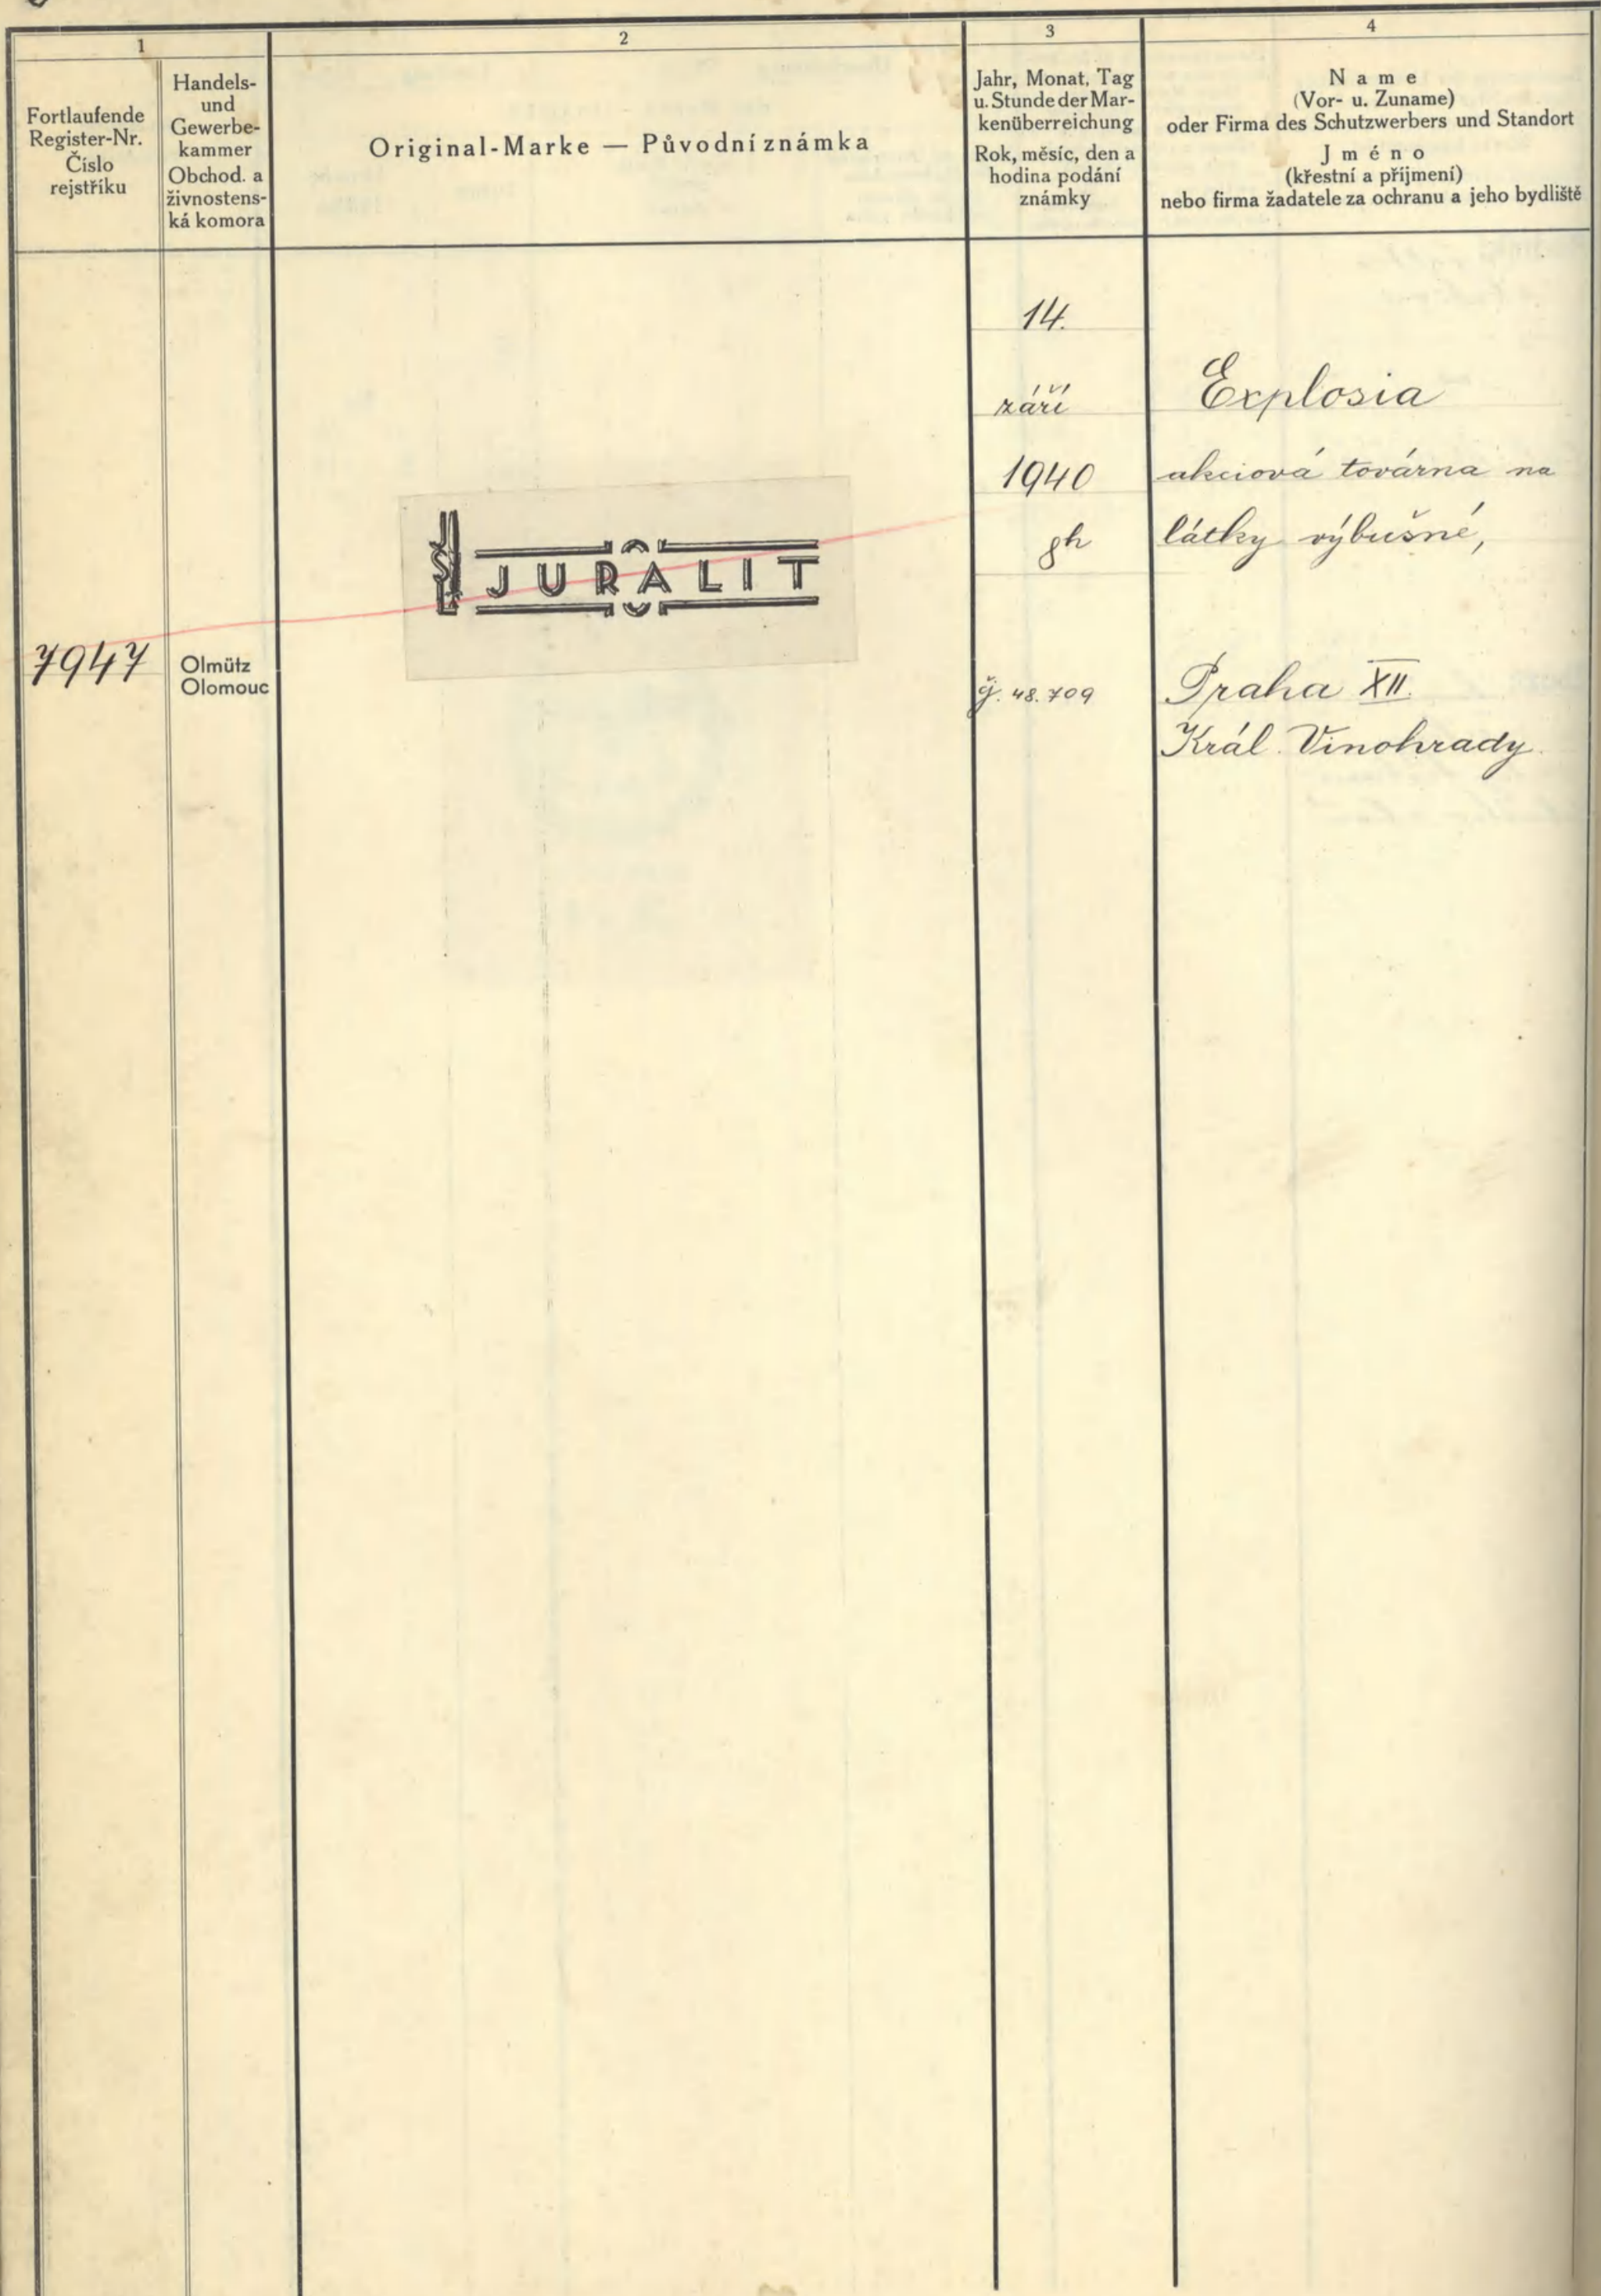 1
2
3
4
Fortlaufende
Register-Nr.
Číslo
rejstříku
Handels-
und
Gewerbe-
kammer
Obchod. a
živnostens-
ká komora
Original-Marke — Původní známka
Jahr, Monat, Tag
u. Stunde der Mar-
kenüberreichung
Rok, měsíc, den a
hodina podání
známky
Name
(Vor- u. Zuname)
oder Firma des Schutzwerbers und Standort
Jméno
(křestní a příjmení)
nebo firma žadatele za ochranu a jeho bydliště
7947
Olmütz
Olomouc
JURALIT
14.
září
1940
8h
48.709
Explosia
akciová továrna na
látky výbušné,
Praha XII.
Král. Vinohrady.